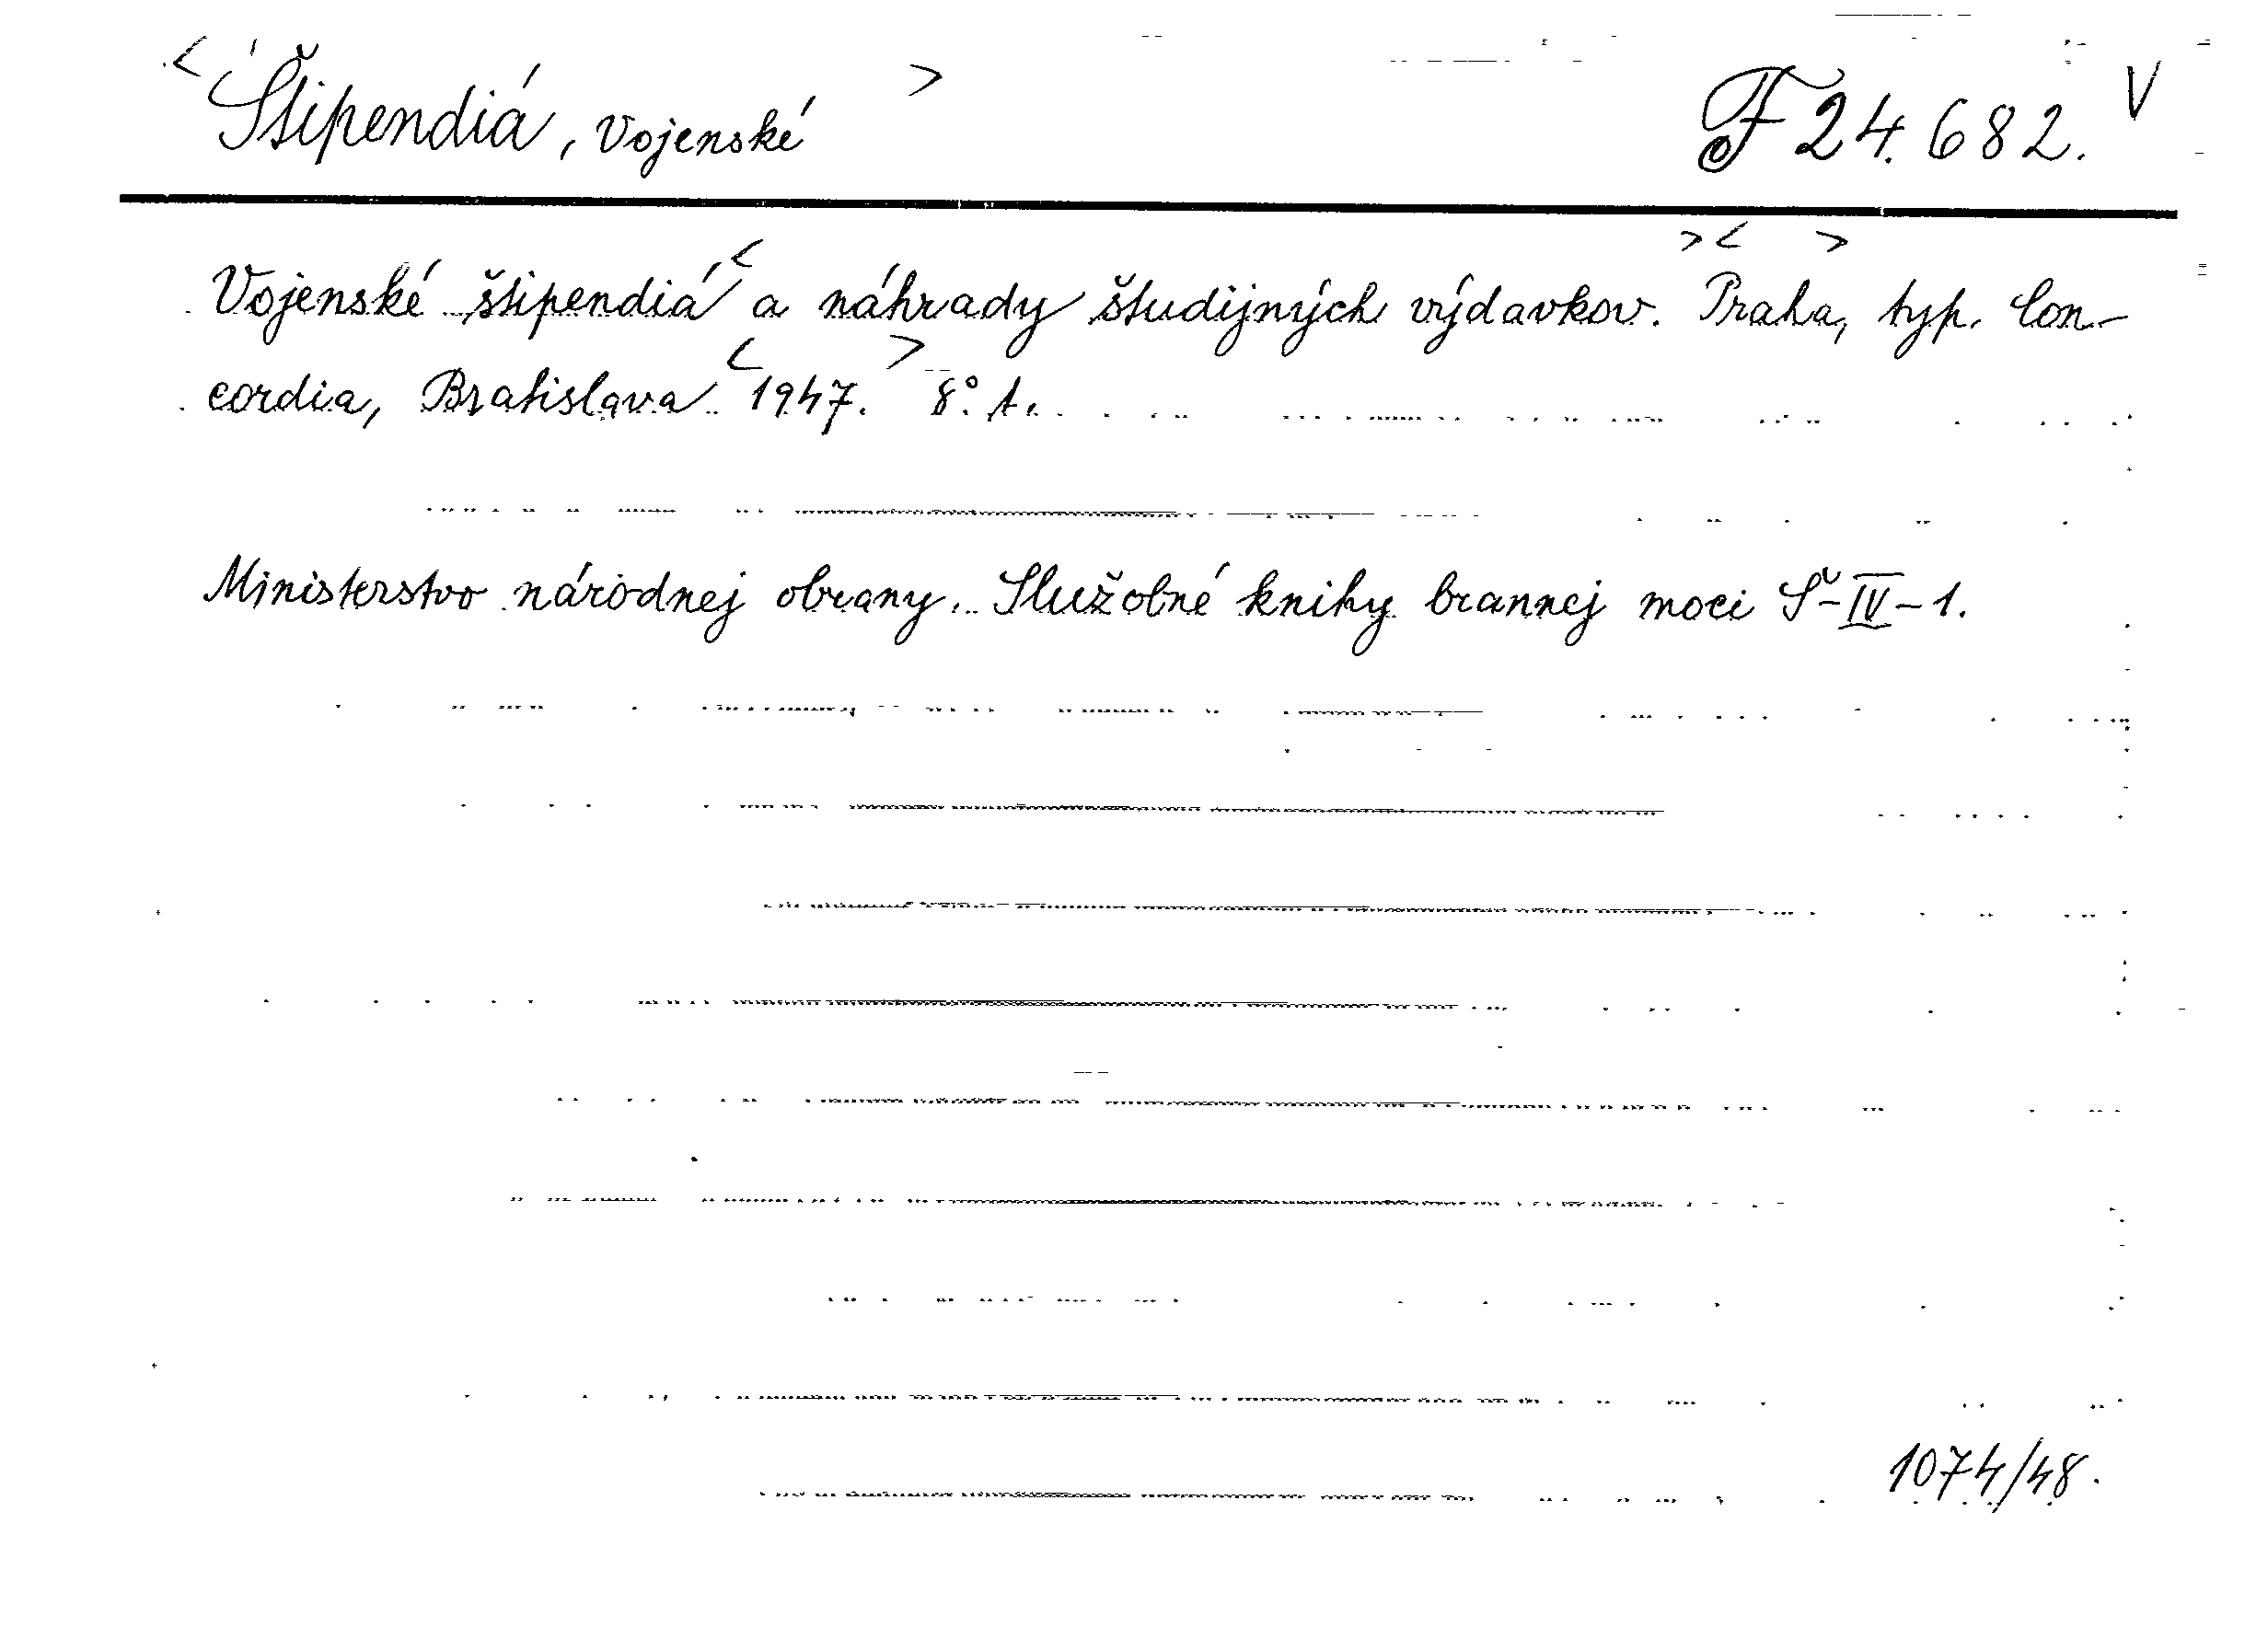 < Štipendiá, Vojenské > F 24.682. V
Vojenské štipendiá < a náhrady študijných výdavkov. > < Praha, > typ. Con-
cordia, Bratislava < 1947. > 8°. t.
Ministerstvo národnej obrany. Služobné knihy brannej moci Š-IV-1.
1074/48.